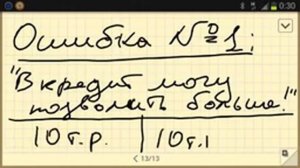 0:30
Ошибка № 1:
"В кредит могу
позволить больше."
10 т.р. | 10 т.1
13/13